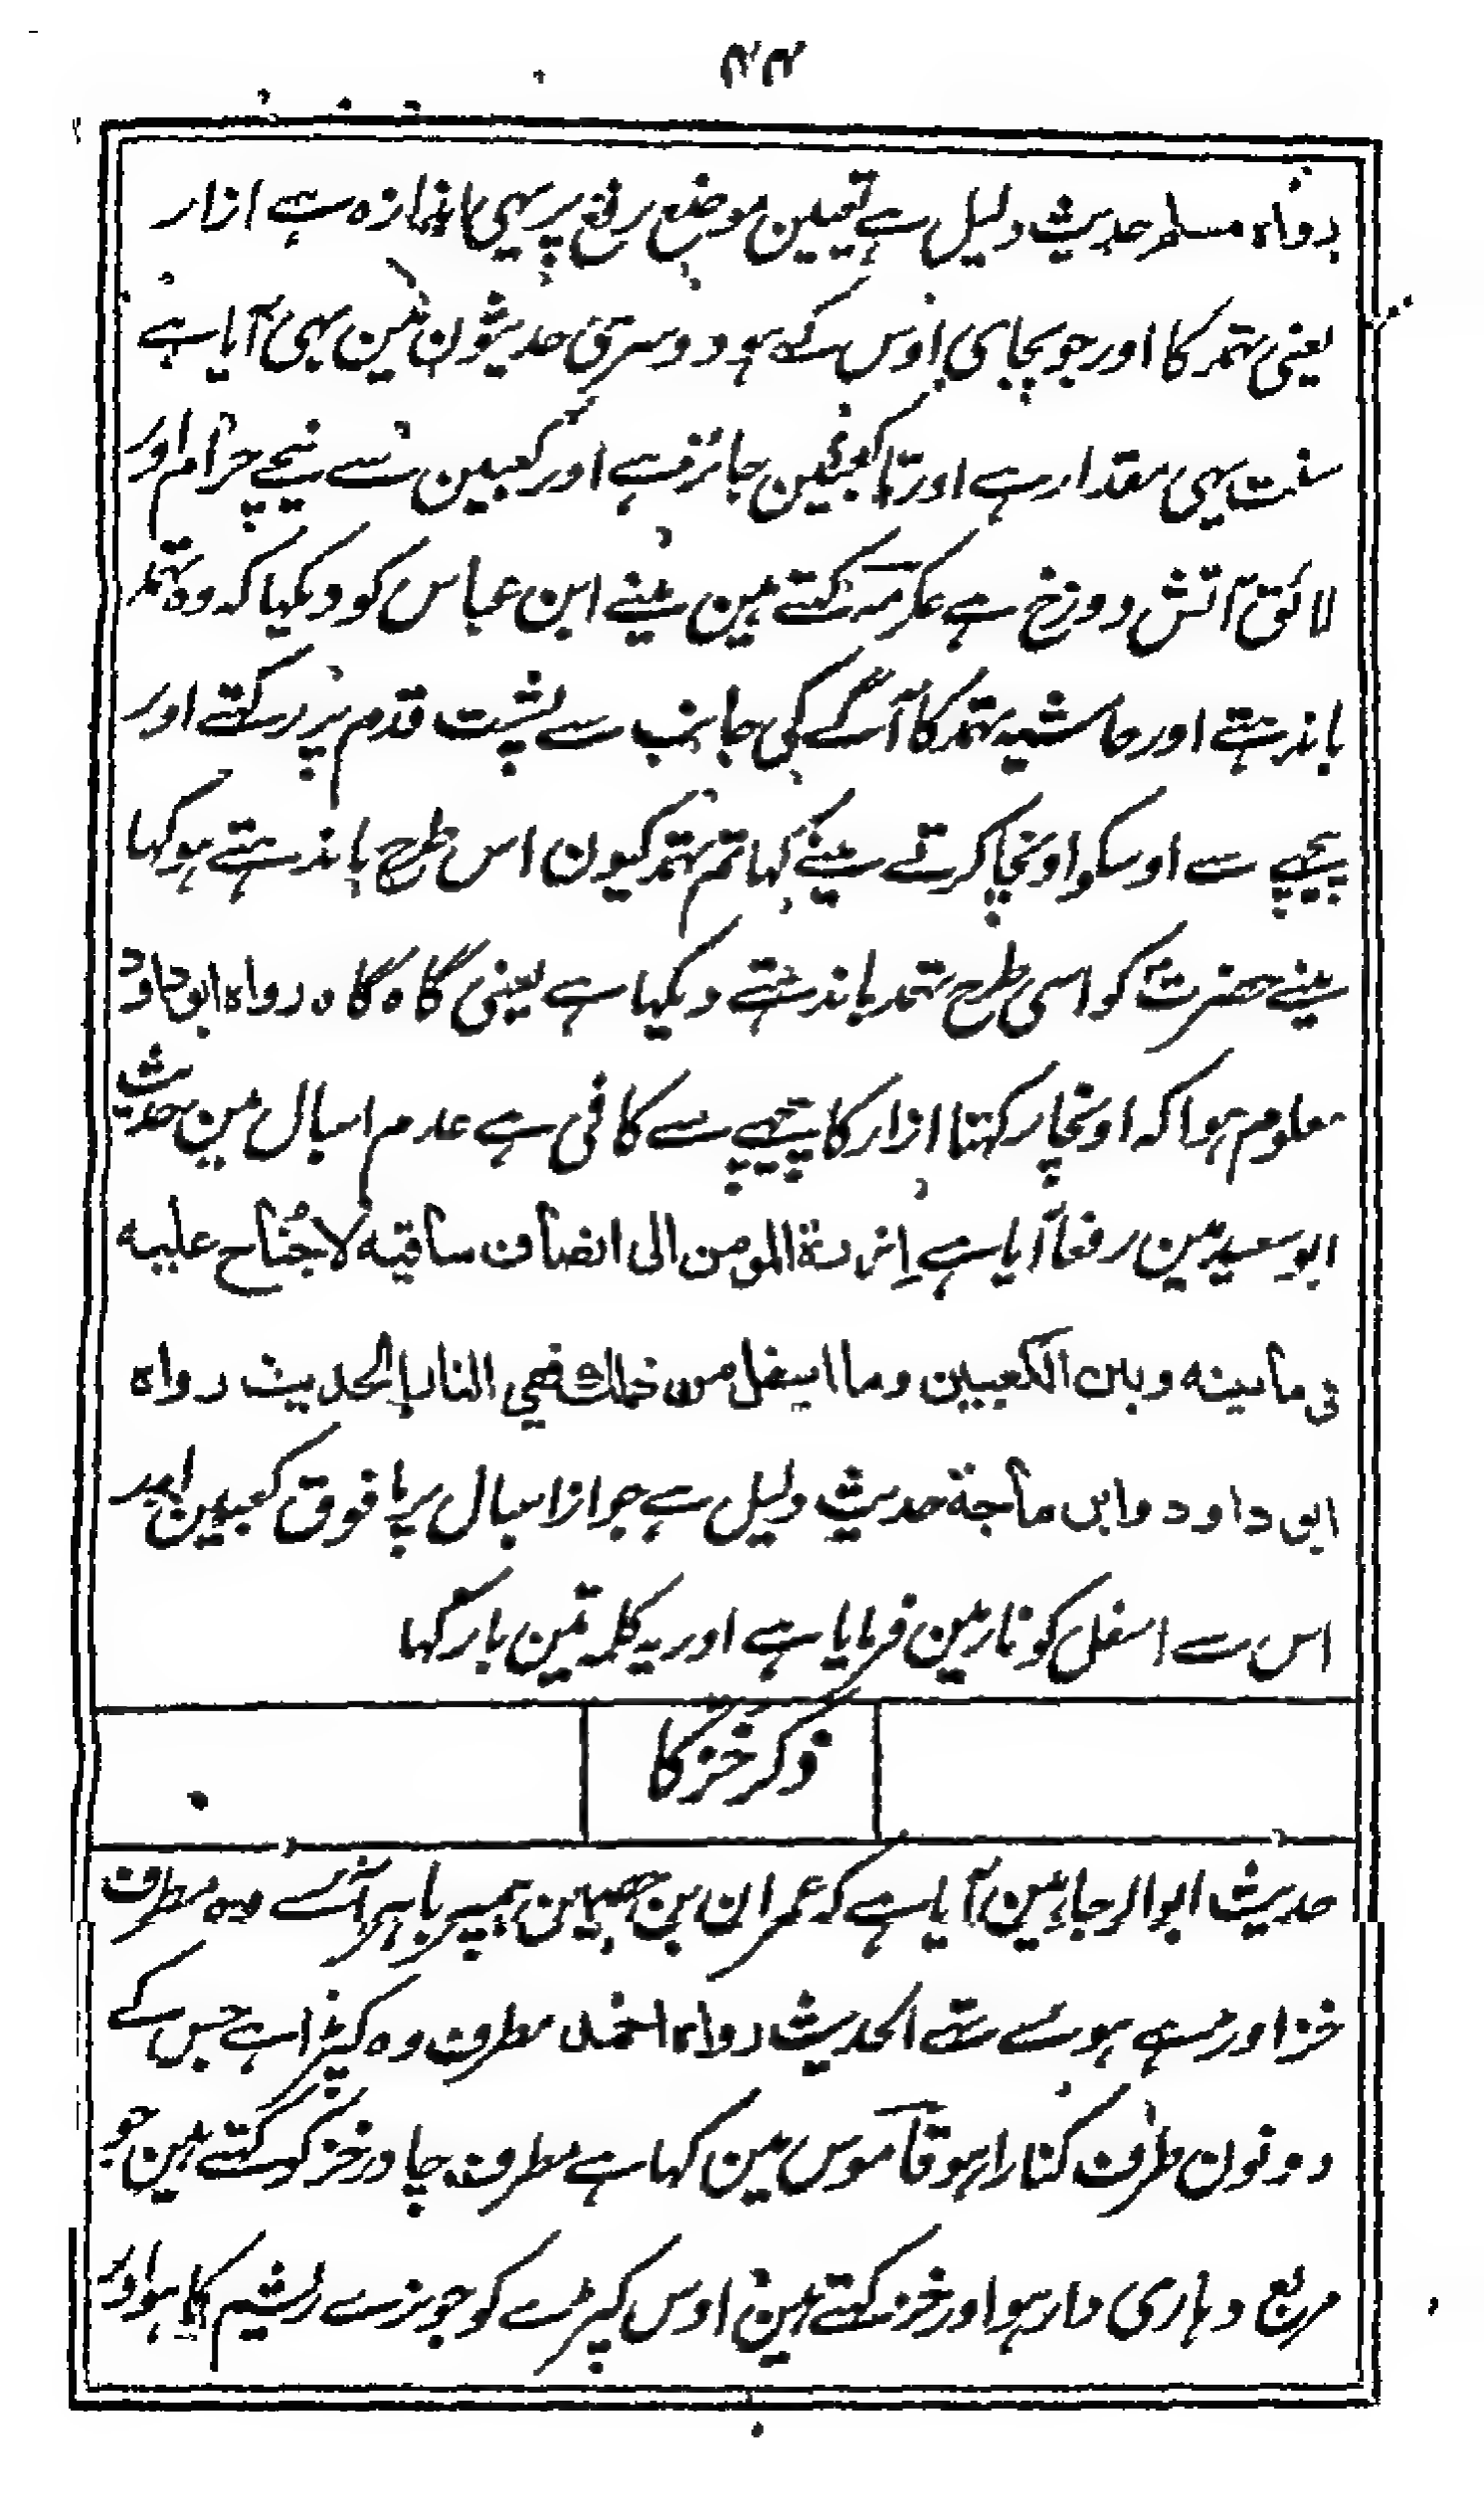 ۴۴
رواہ مسلم حدیث دلیل ہے تعیین موضع رفع پر یہی اندازہ ہے ازار
یعنی تہمد کا اور جو بجای اوس کے ہو دوسری حدیثون مین بھی آیا ہے
سنت یہی مقدار ہے اور تا کعبین جائز ہے اور کعبین سے نیچے حرام اور
لائق آتش دوزخ ہے عکرمہ کہتے ہین مینے ابن عباس کو دیکہا کہ وہ تہمد
باندہتے اور حاشیہ تہمد کا آگے کی جانب سے پشت قدم پر رکہتے اور
پیچھے سے اوسکو اونچا کرتے مینے کہا تم تہمد کیون اس طرح باندہتے ہو کہا
مینے حضرت کو اسی طرح تہمد باندہتے دیکہا ہے یعنی گاہ گاہ رواہ ابو داود
معلوم ہوا کہ اونچا رکہنا ازار کا پیچھے سے کافی ہے عدم اسبال مین حدیث
ابو سعید مین رفعاً آیا ہے اِزرۃ المومن الی انصاف ساقیہ لا جُناح علیہ
فی ما بینہ وبین الکعبین وما اسفل من ذلک ففی النار الحدیث رواہ
ابو داود وابن ماجۃ حدیث دلیل ہے جواز اسبال پر تا فوق کعبین اور
اس سے اسفل کو نار مین فرمایا ہے اور یہ کلمہ تین بار کہا
ذکر خز کا
حدیث ابو الرجاء مین آیا ہے کہ عمران بن حصین ہمپر باہر آئے وہ مطرف
خز اوڑہے ہوئے تھے الحدیث رواہ احمد مطرف وہ کپڑا ہے جس کے
دونون طرف کنارا ہو قاموس مین کہا ہے مطرف چادر خز کو کہتے ہین جو
مربع دہاری دار ہو اور خز کہتے ہین اوس کپڑے کو جو نرے ریشم کا ہو اور